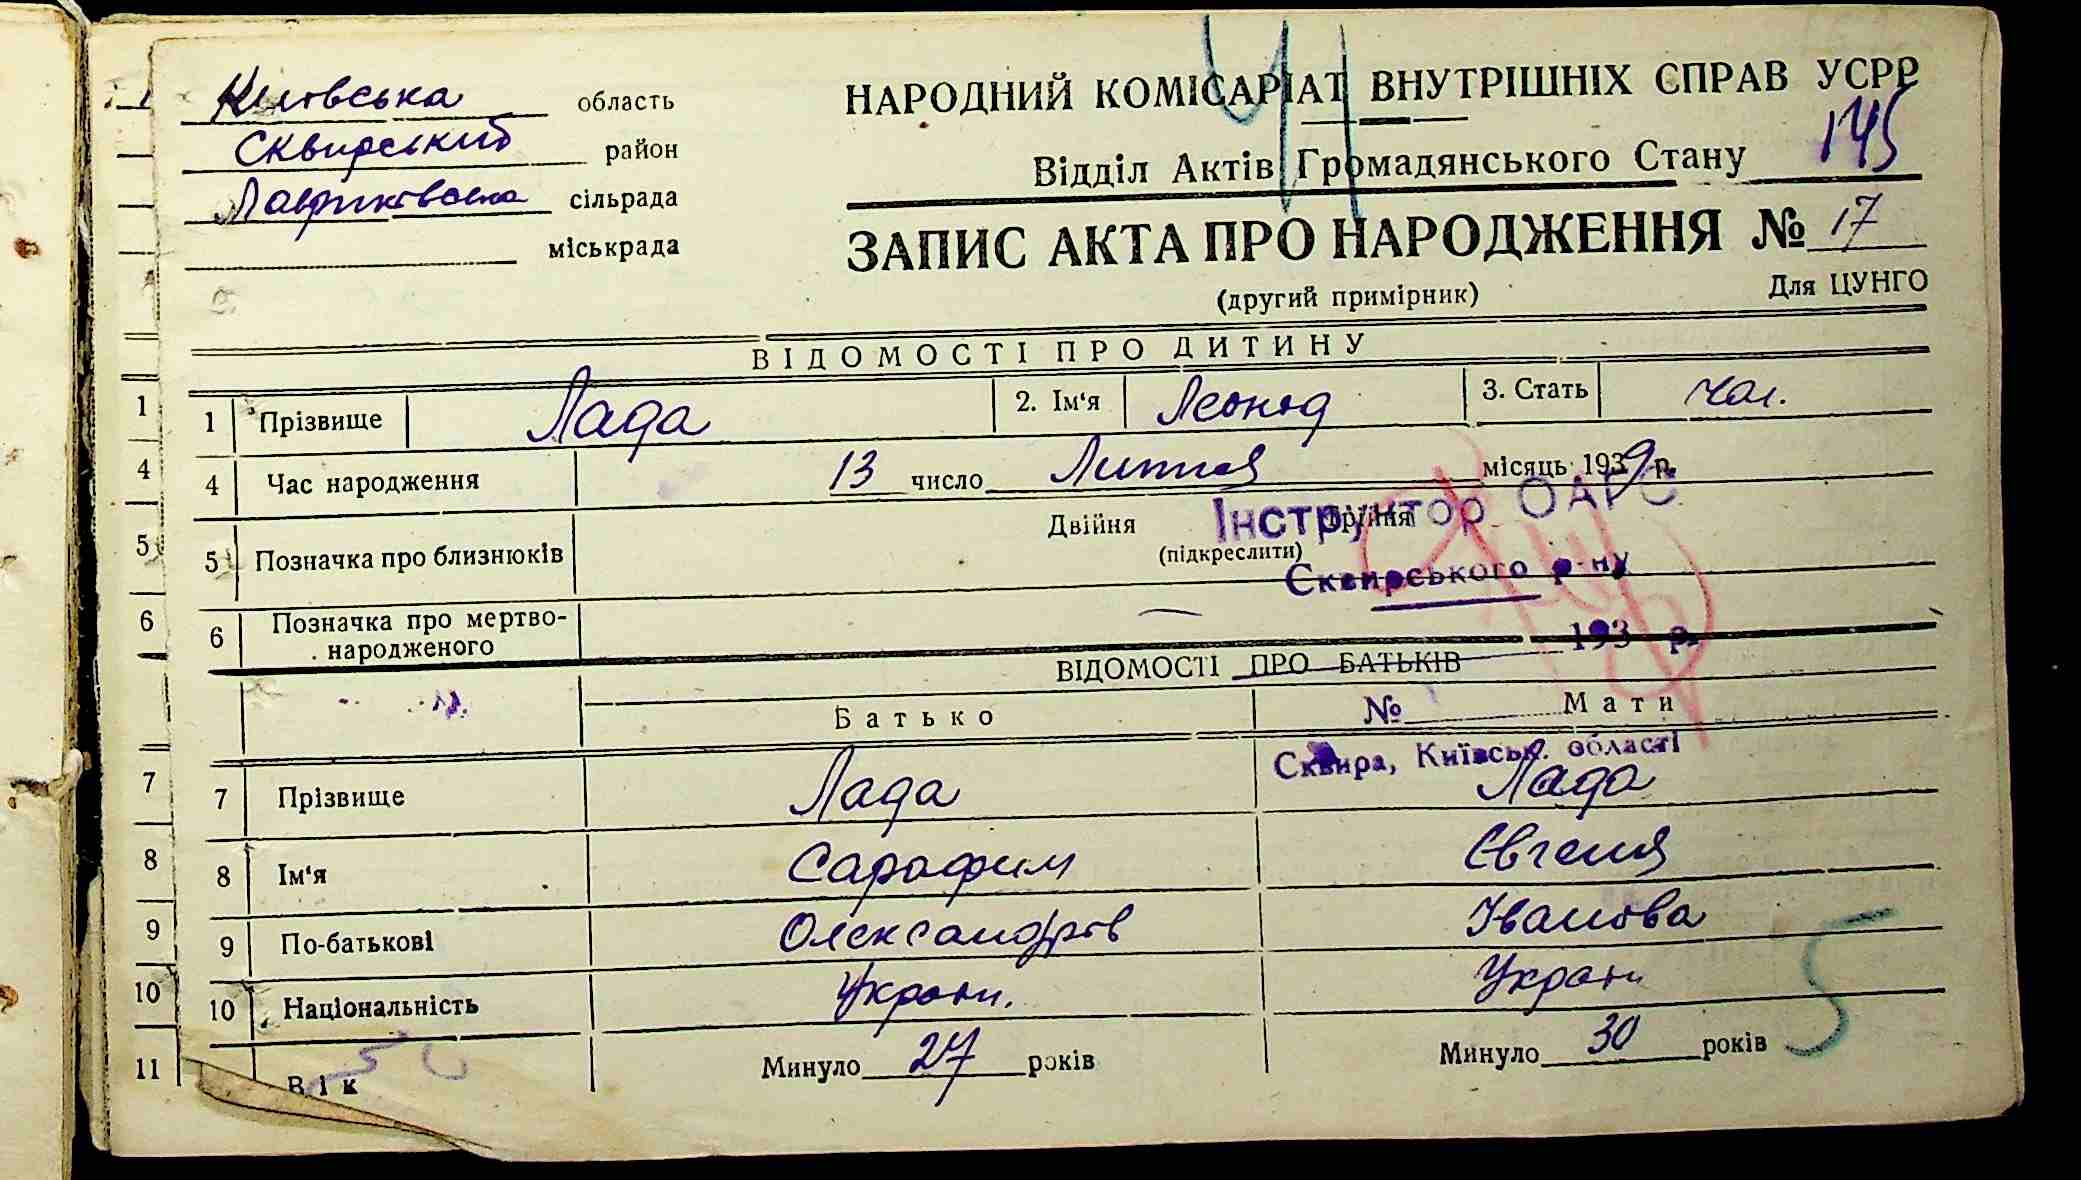 Київська область
Сквирський район
Лавриковська сільрада
міськрада
НАРОДНИЙ КОМІСАРІАТ ВНУТРІШНІХ СПРАВ УСРР
145
Відділ Актів Громадянського Стану
ЗАПИС АКТА ПРО НАРОДЖЕННЯ № 17
(другий примірник) Для ЦУНГО
ВІДОМОСТІ ПРО ДИТИНУ
1 1 Прізвище Лада 2. Ім'я Леонід 3. Стать чол.
4 4 Час народження 13 число Лютня місяць 1939 р.
Інструктор ОАГС
5 5 Позначка про близнюків Двійня Трійня
(підкреслити)
Сквирського р-ну
6 6 Позначка про мертво-
народженого
193 р.
ВІДОМОСТІ ПРО БАТЬКІВ
Батько Мати
№
Сквира, Київськ. області
7 7 Прізвище Лада Лада
8 8 Ім'я Сарафим Євгенія
9 9 По-батькові Олександров Іванова
10 10 Національність Україн. Україн
11 Вік Минуло 27 років Минуло 30 років
5